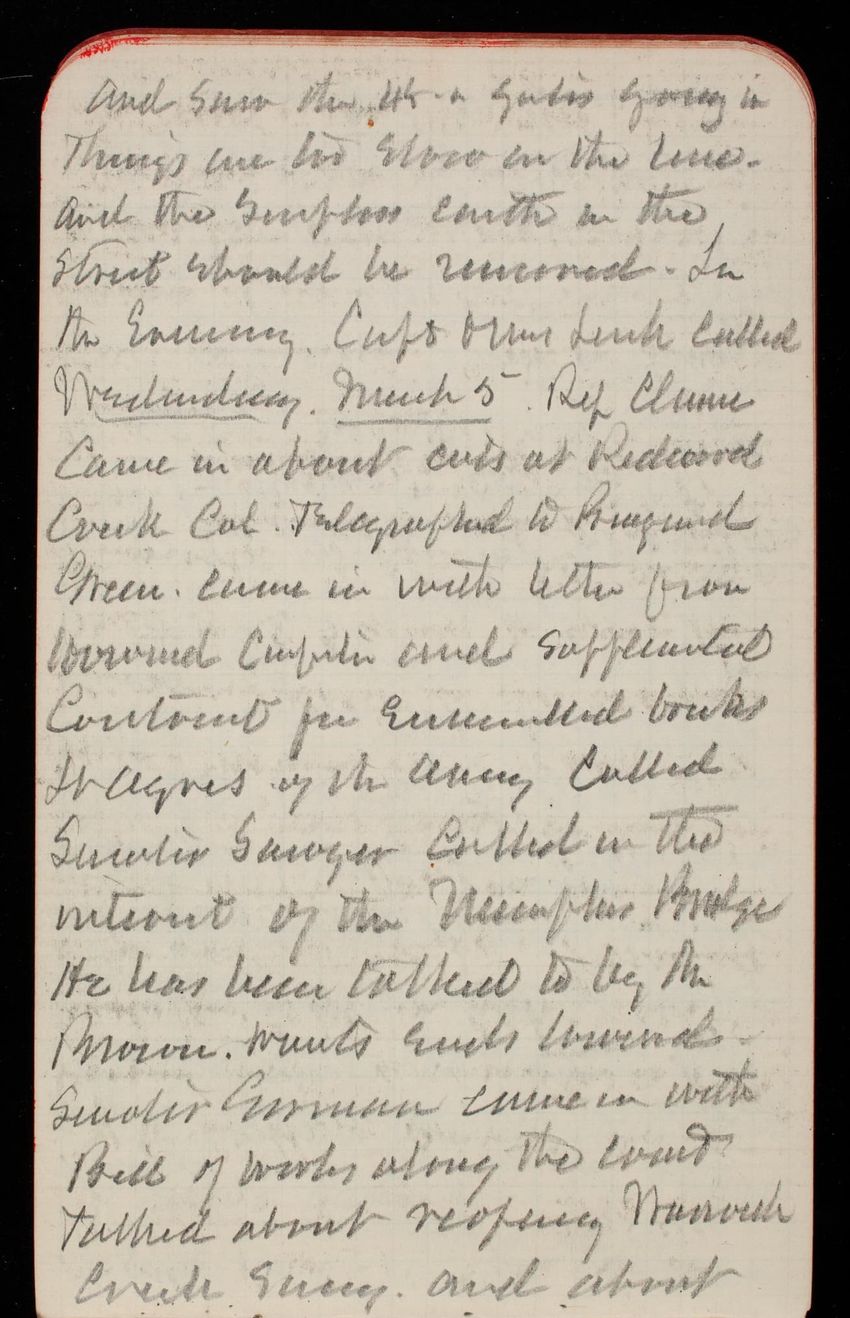 And saw the gates going in
Things are too slow on the line.
And the surplus earth in the
Street should be removed. In
the Evening. Capt Lusk called
Wednesday. March 5. Rep Clunie
Came in about cuts at Redwood
Creek Cal. Telegraphed to
Green. came in with letter from
and supplemental
Contract for Enamelled bricks
Lt of the Army Called
Senator Sawyer Called in the
interest of the Memphis Bridge
He has been talked to by the
wants ends lowered.
Senator Gorman came in with
Bill of works along the coast
Talked about reopening Warwick
Creek Survey. and about